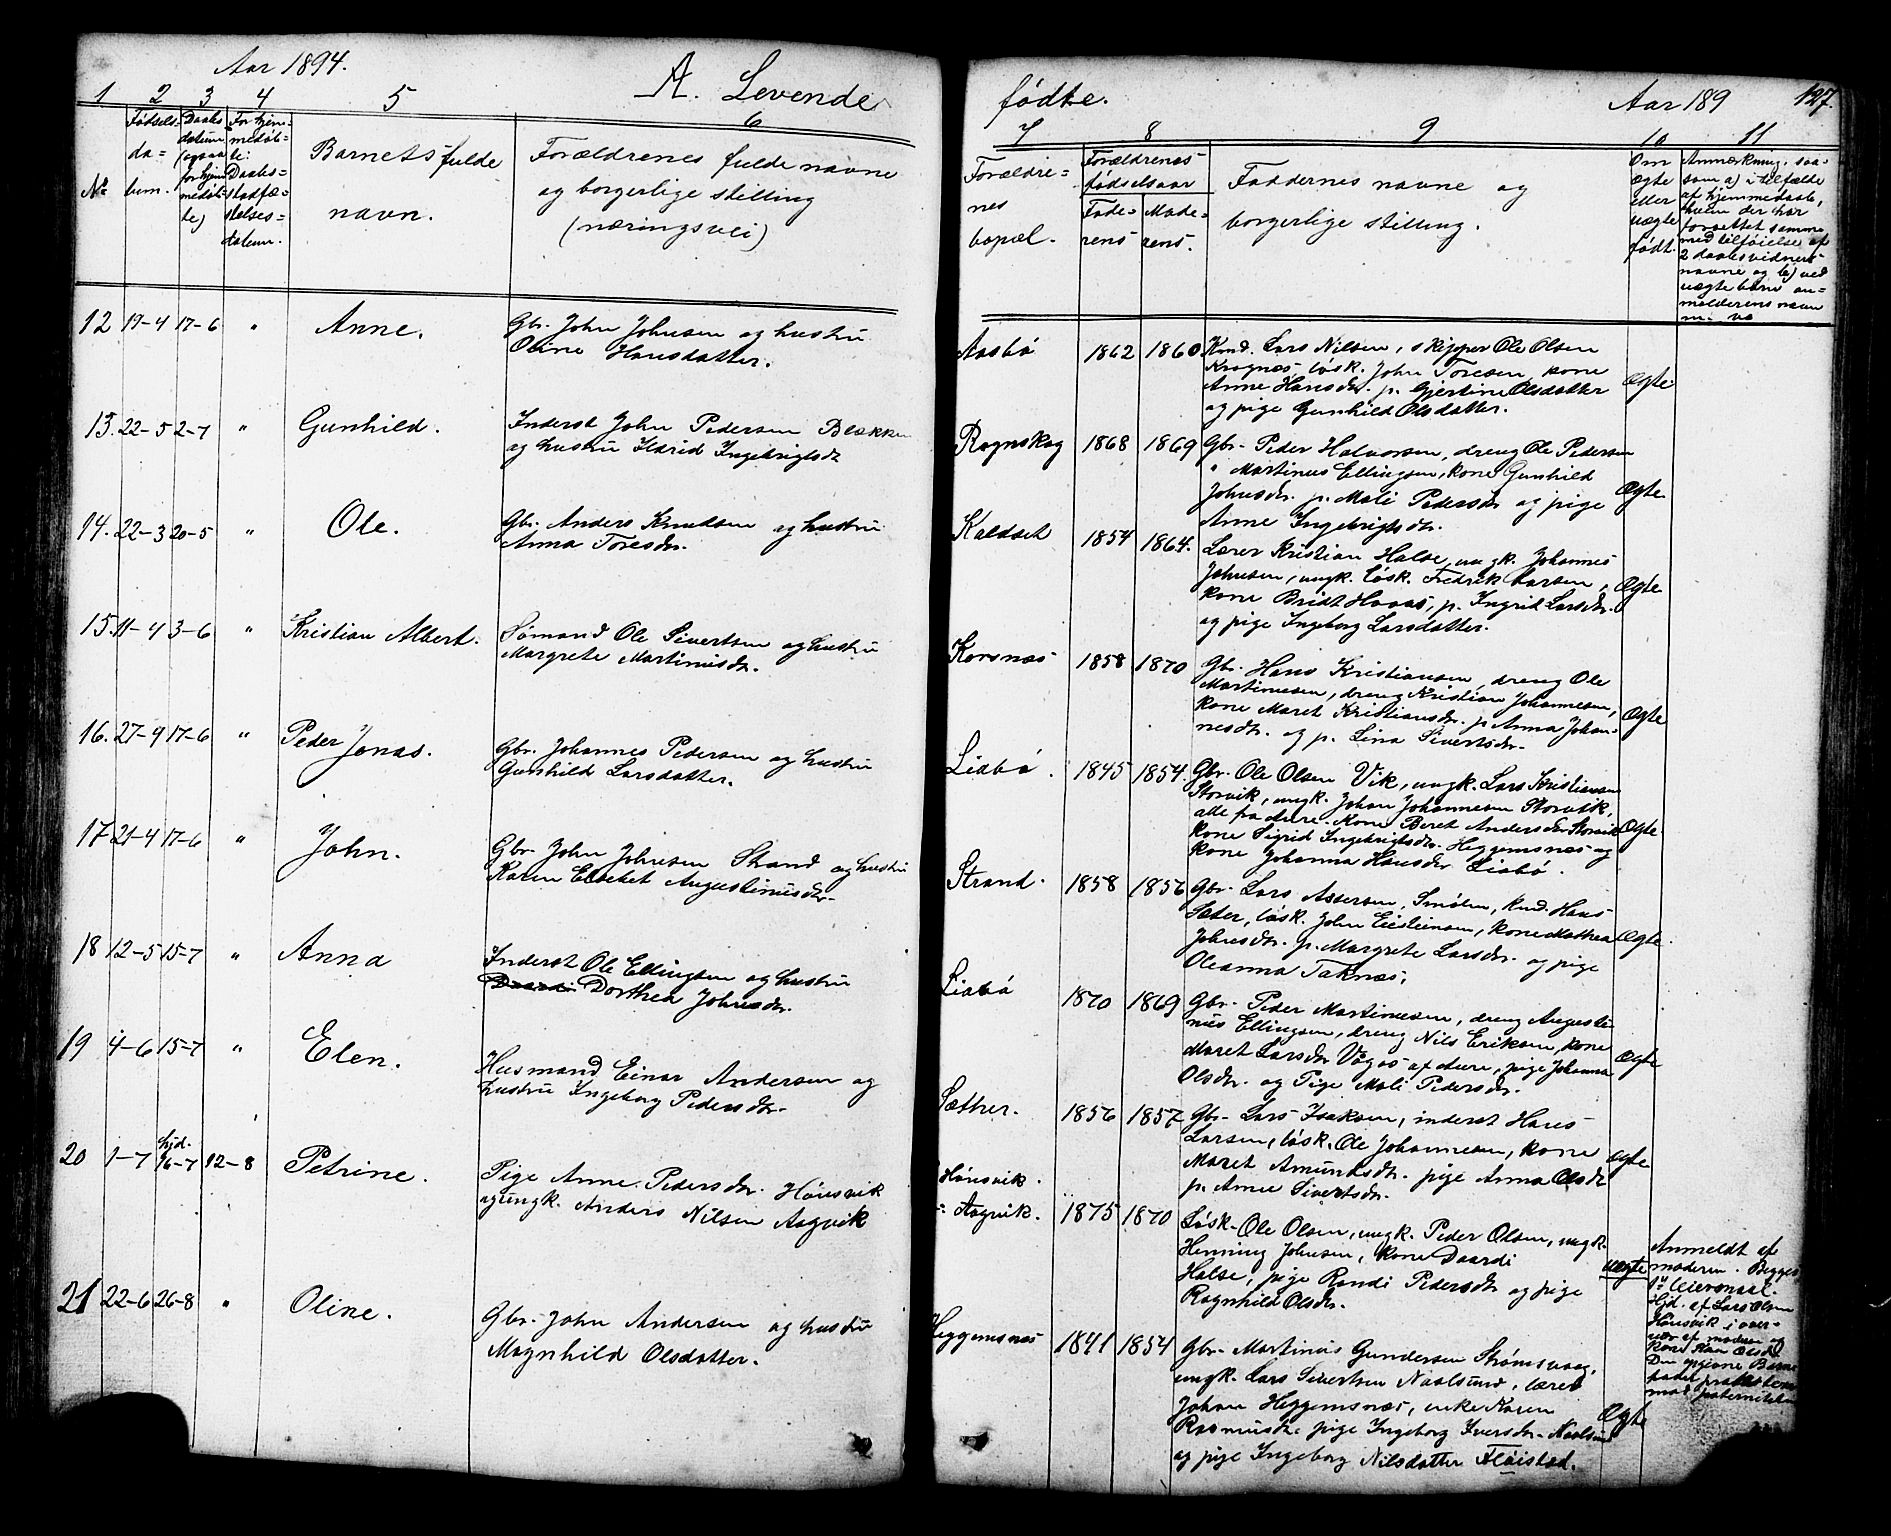 Aar 1894.
A. Levende
1 2 3 4 5 6
No
Fødsels-
da-
tum.
Daabs
datum
(ogsaa
for hjem
medøb-
te)
For hjem-
medøb-
te:
Daabs-
stadfæ-
stelses-
datum.
Barnets fulde
navn.
Forældrenes fulde navne
og borgerlige stilling
(næringsvei)
12 19-4 17-6 " Anne. Gbr. John Johnsen og hustru
Oline Hansdatter.
13. 22-5 2-7 " Gunhild. Inderst John Pedersen Blækken
og hustru Ildrid Ingebrigtsdr
14. 22-3 20-5 " Ole. Gbr. Anders Knudsen og hustru
Anna Toresdr.
15. 11-4 3-6 " Kristian Albert. Sømand Ole Sivertsen og hustru
Margrete Martinusdr.
16. 27-4 17-6 " Peder Jonas. Gbr. Johannes Pedersen og hustru
Gunhild Larsdatter.
17 21-4 17-6 " John. Gbr. John Johnsen Strand og hustru
Karen Elsebet Augustinusdr.
18 12-5 15-7 " Anna Inderst Ole Ellingsen og hustru
Dorthea Johnsdr.
19 4-6 15-7 " Elen. Husmand Einar Andersen og
hustru Ingeborg Pedersdr.
20 1-7 hjd. 16-7 12-8 Petrine. Pige Anne Pedersdr. Hønsvik
og ungk. Anders Nilsen Aagvik
21 22-6 26-8 " Oline. Gbr. John Andersen og hustru
Magnhild Olsdatter.
fødte.
Aar 189
127
7 8 9 10 11
Forældre-
nes
bopæl.
Forældrenes
fødselsaar
Fade-
rens
Mode-
rens.
Faddernes navne og
borgerlige stilling.
Om
ægte
eller
uægte
født.
Anmærkning, saa-
som a) i tilfælde
af hjemmedaab,
hvem der har
forrettet samme
med tilføielse af
2 daabsvidners
navne og b) ved
uægte børn an-
melderens navn
m. v.
Aasbø 1862 1860 Kmd. Lars Nilsen, skipper Ole Olsen
Kragnes, løsk. John Toresen, kone
Anne Hansdr. p. Gjertine Olsdatter
og pige Gunhild Olsdatter.
Ægte
Rognskog 1868 1869 Gbr. Peder Halvorsen, dreng Ole Pedersen
" Martinus Ellingsen, kone Gunhild
Johnsdr. p. Mali Pedersdr og pige
Anne Ingebrigtsdr.
Ægte
Kaldset 1854 1864. Lærer Kristian Halse, ungk. Johannes
Johnsen, ungk. løsk. Fredrik Larsen,
kone Bridt Haaas, p. Ingrid Larsdr.
og pige Ingeborg Larsdatter.
Ægte
Korsnæs 1858 1870 Gbr. Hans Kristiansen, dreng Ole
Martinusen, dreng Kristian Johannesen,
kone Maret Kristiansdr. p. Anna Johan-
nesdr. og p. Lina Sivertsdr.
Ægte
Liabø. 1845 1854. Gbr. Ole Olsen Vik, ungk. Lars Kristiansen
Storvik, ungk. Johan Johannesen Storvik,
alle fra Aure. Kone Beret Andersdr Storvik
kone Sigrid Ingebrigtsdr. Heggemsnæs og
kone Johanna Hansdr Liabø.
Ægte
Strand. 1858 1856 Gbr. Lars Assersen, Smølen, kmd. Hans
Sæter, løsk. John Eistensen, kone Mathea
Johnsdr. p. Margrete Larsdr. og pige
Oleanna Taknæs.
Ægte
Liabø 1870 1869 Gbr. Peder Martinusen, dreng Augusti-
nus Ellingsen, dreng Nils Eriksen, kone
Maret Larsdr Vågos af Aure, pige Johanna
Olsdr. og Pige Mali Pedersdr.
Ægte
Sæther. 1856 1857 Gbr. Lars Isaksen, inderst Hans
Larsen, løsk. Ole Johannesen, kone
Maret Amundsdr. pige Anna Olsdr
p. Anne Sivertsdr.
Ægte
Hønsvik.
Aagvik. 1875 1870 Løsk. Ole Olsen, ungk. Peder Olsen, ungk.
Henning Johnsen, kone Daardi
Halse, pige Randi Pedersdr og pige
Ragnhild Olsdr.
uægte
Anmeldt af
moderen. Begges
1ste leiermaal.
Hjd. af Lars Olsen
Hønsvik i over-
vær af moderen og
kone Olsdr
Den opgivne Barne
fader
mod paterniteten
Heggemsnæs 1841 1854 Gbr. Martinus Gundersen Strømsvaag,
ungk. Lars Sivertsen Naalsund, lærer
Johan Heggemsnæs, enke Karen
Rasmusdr. pige Ingeborg Iversdr. Naalsund
og pige Ingeborg Nilsdatter Fløistad.
Ægte